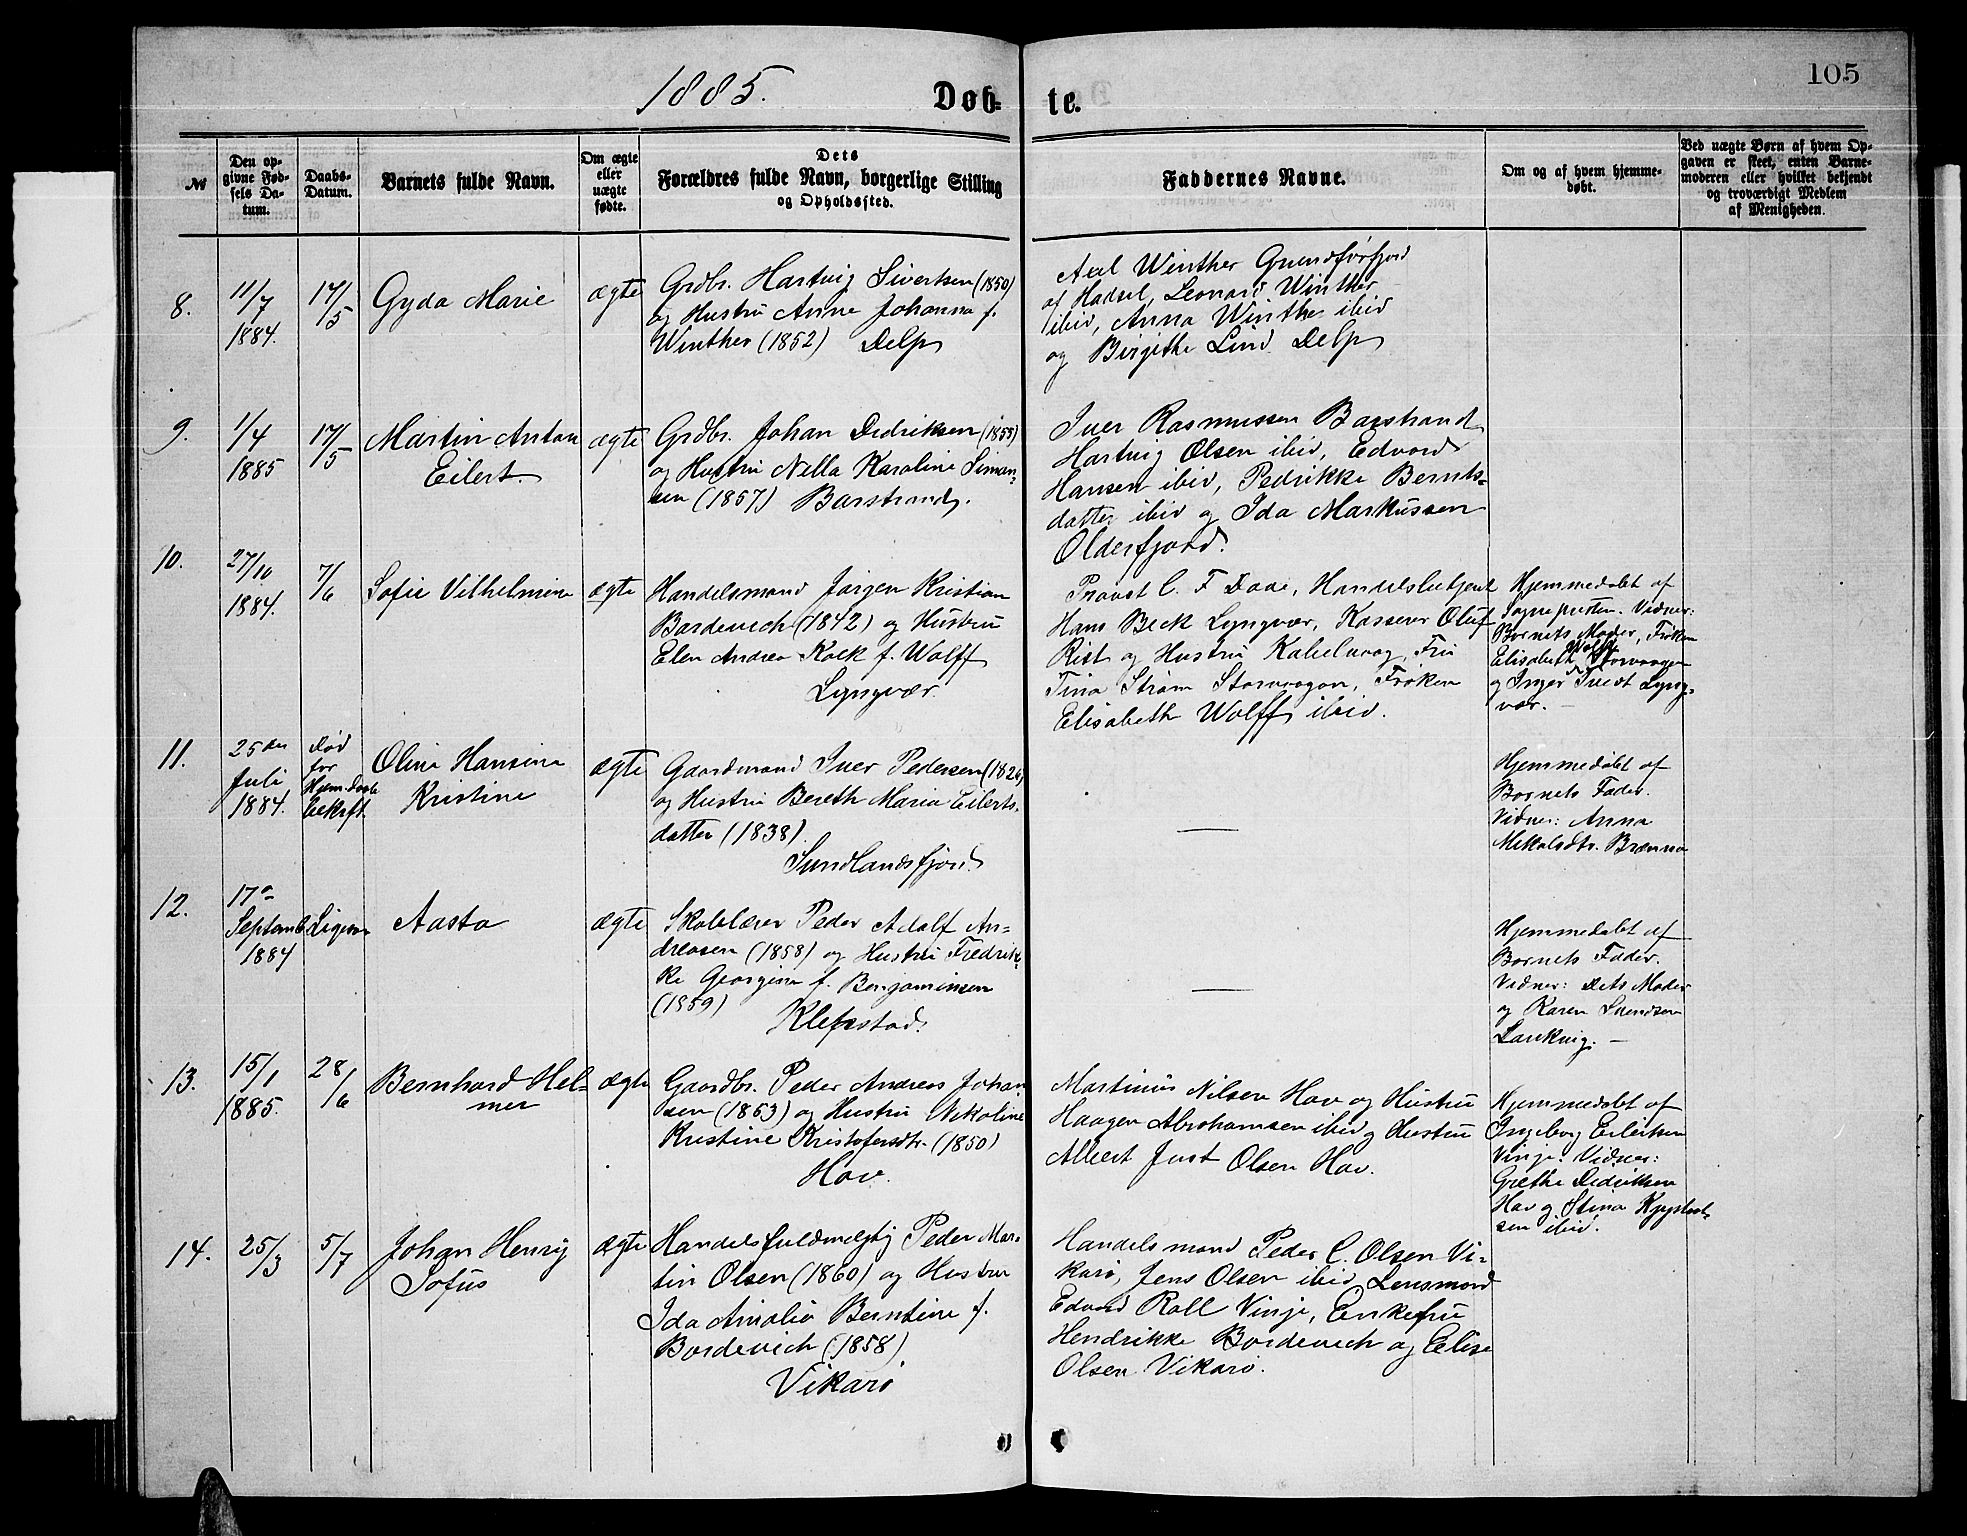 105
1885.
Dob-
te.
№
Den op-
givne Fød-
sels Da-
tum.
Daabs-
Datum.
Barnets fulde Navn.
Om ægte
eller
uægte
fødte.
Dets
Forældres fulde Navn, borgerlige Stilling
og Opholdssted.
Faddernes Navne.
Om og af hvem hjemme-
døbt.
Ved uægte Børn af hvem Op-
gaven er skeet, enten Barne-
moderen eller hvilket bekjendt
og troværdigt Medlem
af Menigheden.
8.
11/7
1884.
17/5
Gyda Marie
ægte
Grdbr. Hartvig Sivertsen (1850)
og Hustru Anne Johanna f.
Winther (1852) Delp
Axel Winther Grundførfjord
af Hadsel, Leonard Winther
ibid, Anna Winther ibid
og Birgithe Lind Delp
9.
1/4
1885
17/5
Martin Anton
Eilert.
ægte
Grdbr. Johan Didriksen
og Hustru Nella Karoline Simon-
sen (1857) Barstrand.
Iver Rasmussen Barstrand
Hartvig Olsen ibid, Edvard
Hansen ibid, Pedrikke Bernts-
datter ibid og Ida Markussen
Olderfjord.
10.
27/10
1884.
7/6
Sofie Vilhelmine
ægte
Handelsmand Jørgen Kristian
Bordevich (1842) og Hustru
Elen Andrea Kolk f. Wolff
Lyngvær.
Provst C. F. Daae, Handelsbetjent
Hans Beck Lyngvær, Kasserer Oluf
Rist og Hustru Kabelvaag, Fru
Tina Strøm Storvaagan, Frøken
Elisabeth Wolff ibid.
Hjemmedøbt af
Sognepresten. Vidner:
Barnets Moder, Frøken
Elisabeth Wolff Storvaagen
og Inger Lyng-
vær. —
11.
25de
Juli
1884.
Død
før
Hjem.daab
bekrft.
Oline Hansine
Kristine
ægte
Gaardmand Iver Pedersen (1826)
og Hustru Bereth Maria Eilerts-
datter (1838).
Sundlandsfjord
—
Hjemmedøbt af
Barnets Fader.
Vidner: Anna
Mikalsdtr. Brenna
12.
17de
Septemb
1884
Ligesaa
Aasta
ægte
Skolelærer Peder Adolf An-
dreasen (1858) og Hustru Fredrik-
ke Georgine f. Benjaminsen
(1859)
Klepstad.
—
Hjemmedøbt af
Barnets Fader.
Vidner: Dets Moder
og Karen Svendsen
Laukvig. —
13.
15/1
1885.
28/6
Bernhard Hel-
mer
ægte
Gaardbr. Peder Andreas Johan
sen (1853) og Hustru Nikoline
Kristine Kristofersdtr. (1850)
Hov.
Martinus Nilsen Hov og Hustru
Haagen Abrahamsen ibid og Hustru
Albert Just Olsen Hov.
Hjemmedøbt af
Ingeborg Eilertsen
Vinje. Vidner:
Grethe Didriksen
Hov og Stina
sen ibid.
14.
25/3
5/7
Johan Henrij
Sofus
ægte
Handelsfuldmægtig Peder Mar-
tin Olsen (1860) og Hustru
Ida Amalie Berntine f.
Bordevich (1858)
Vikarø
Handelsmand Peder C. Olsen Vi-
karø, Jens Olsen ibid, Lensmand
Edvard Rall Vinje, Enkefru
Hendrikke Bordevich og Elise
Olsen Vikarø.